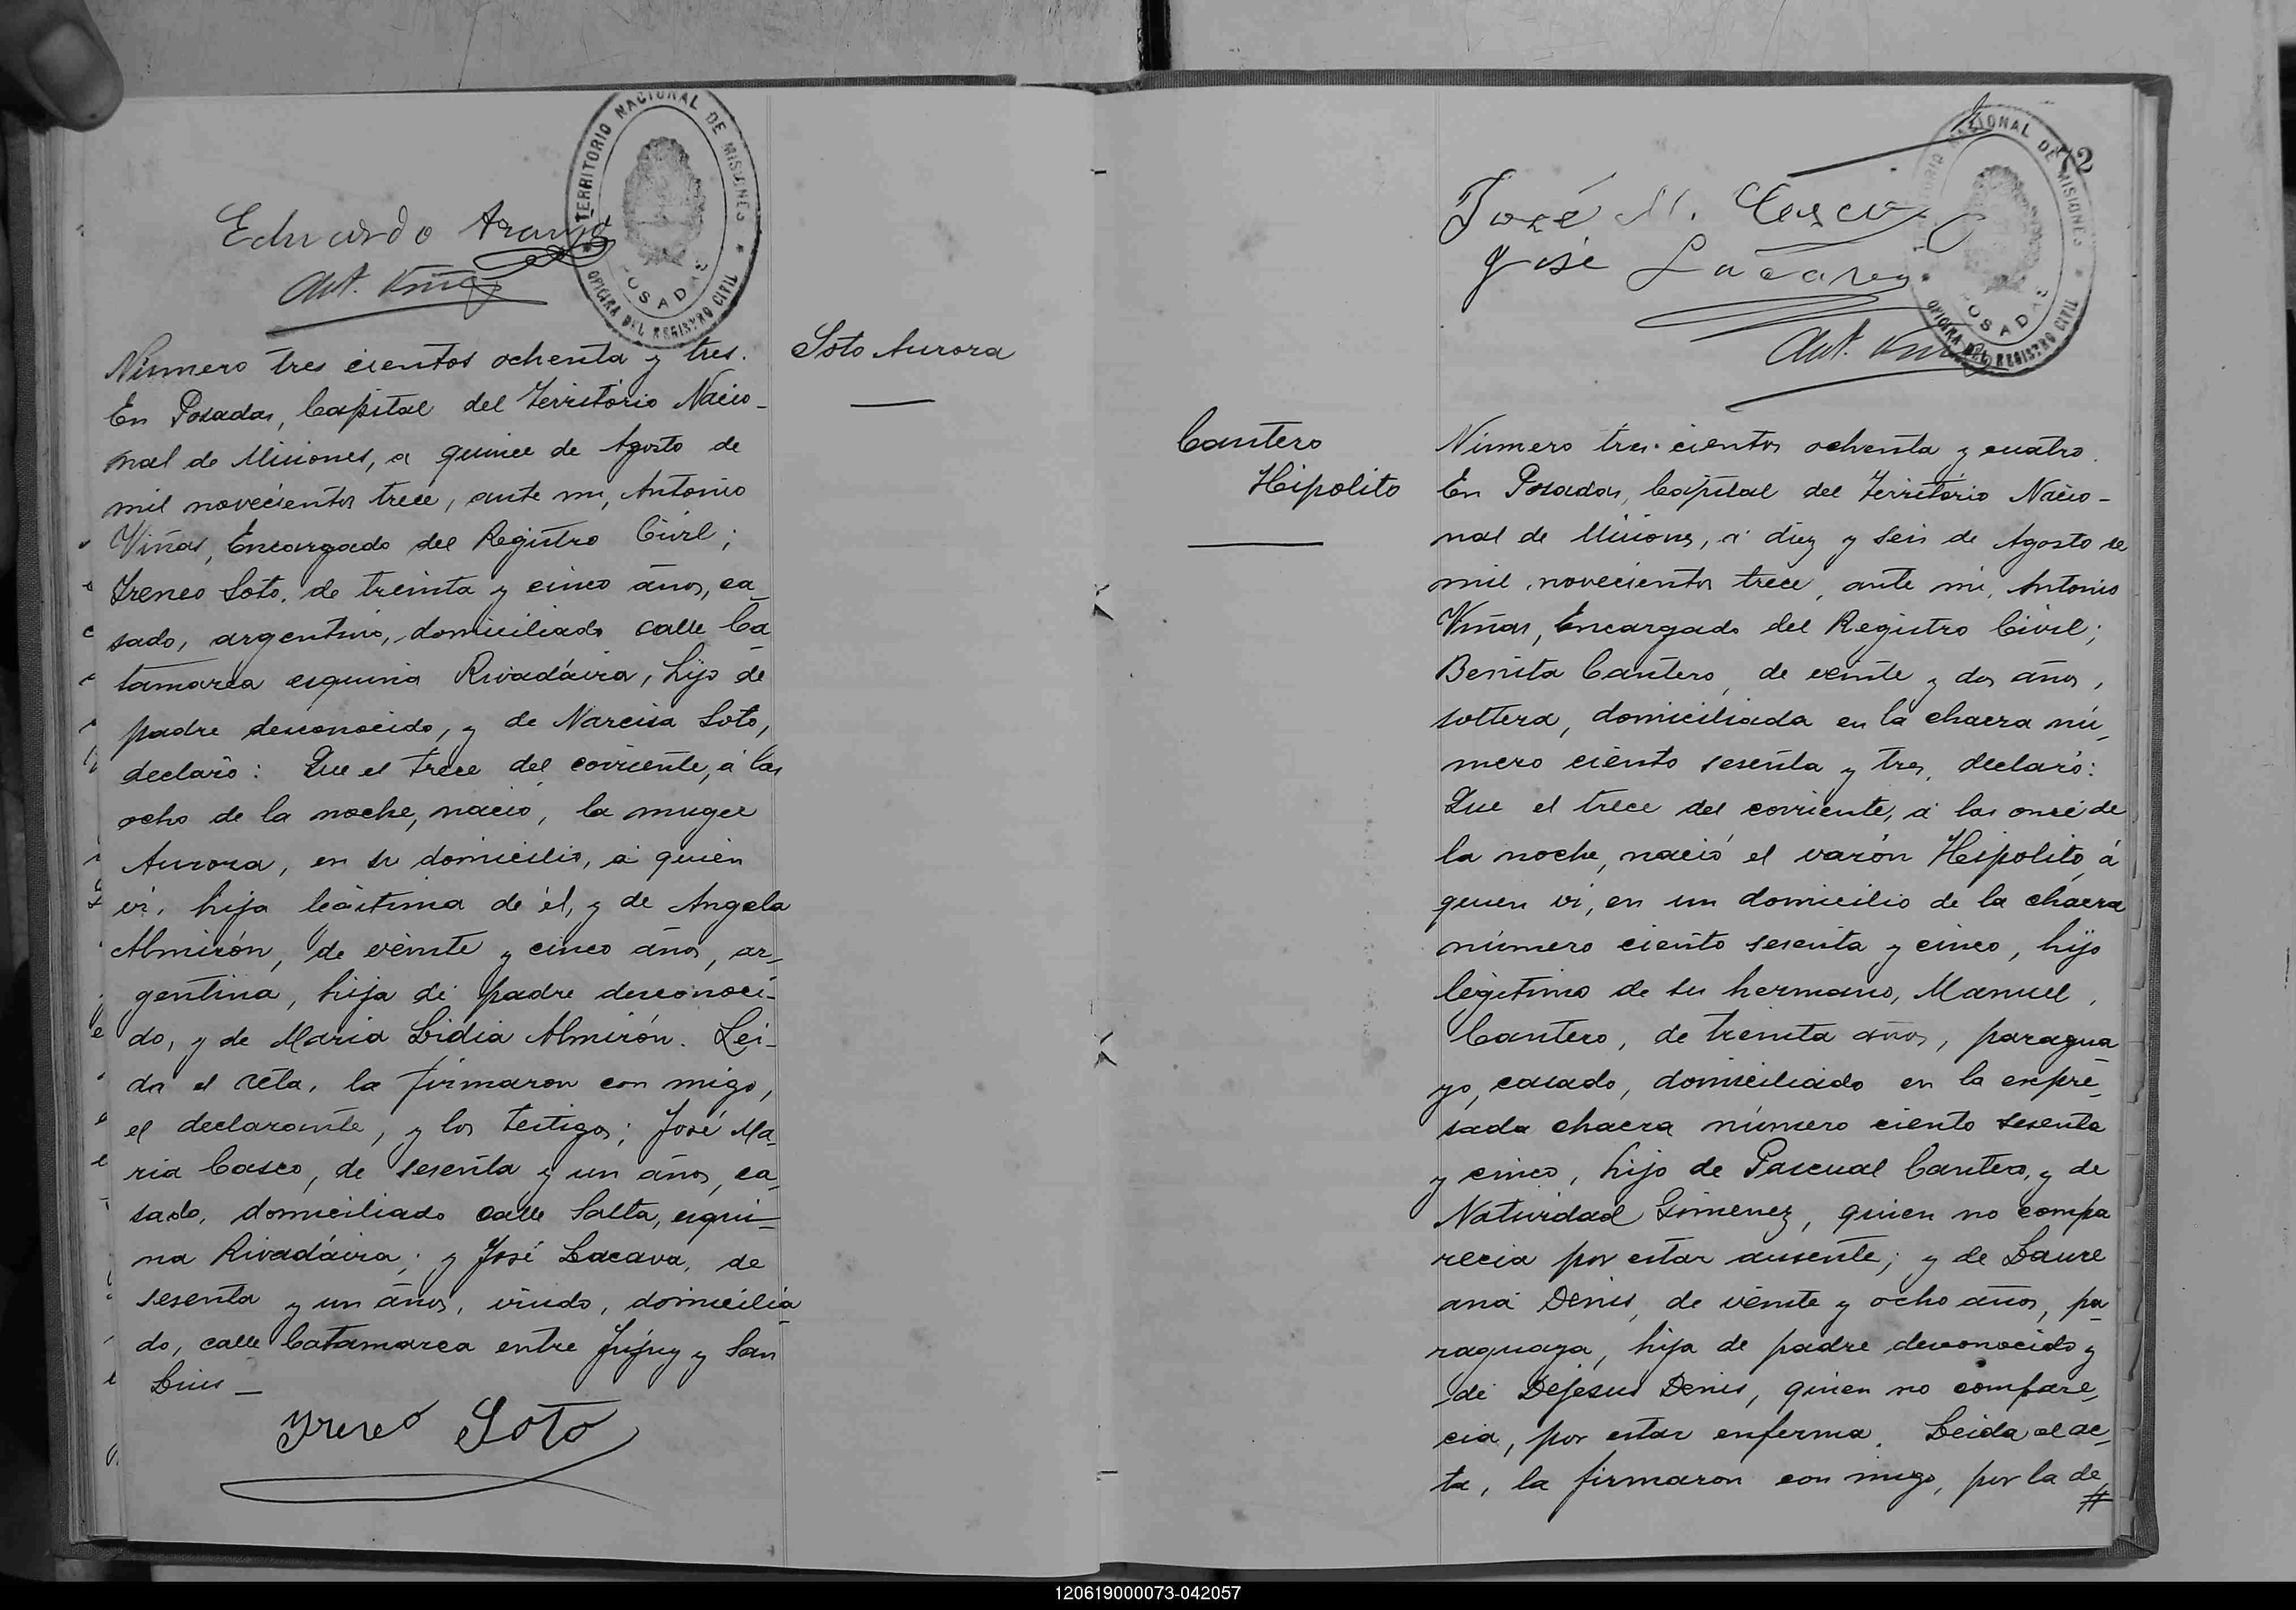 TERRITORIO NACIONAL DE MISIONES
OFICINA DEL REGISTRO CIVIL
POSADAS
Eduardo
Ant. Viñas
Número tres cientos ochenta y tres.
En Posadas, Capital del Território Nacio-
nal de Misiones, a quince de Agosto de
mil novecientos trece, ante mi, Antonio
Viñas, Encargado del Registro Civil;
Ireneo Soto, de treinta y cinco años, ca-
sado, argentino, domiciliado calle Ca-
tamarca esquina Rivadávia, hijo de
padre desconocido, y de Narcisa Soto,
declaró: Que el trece del corriente, á las
ocho de la noche, nació, la muger
Aurora, en su domicilio, á quien
ví, hija legítima de él, y de Angela
Almirón, de veinte y cinco años, ar-
gentina, hija de padre desconoci-
do, y de Maria Lidia Almirón. Lei-
da el acta, la firmaron con migo,
el declarante, y los testigos; José Ma-
ria Casco, de sesenta y un años, ca-
sado, domiciliado calle Salta, esqui-
na Rivadávia; y José Lacava, de
sesenta y un años, viudo, domicilia-
do, calle Catamarca entre Jujuy y San
Luis —
Ireneo Soto
Soto Aurora
72
TERRITORIO NACIONAL DE MISIONES
OFICINA DEL REGISTRO CIVIL
POSADAS
José M. Casco
José Lacava
Ant. Viñas
Cantero
Hipolito
Número tres cientos ochenta y cuatro.
En Posadas, Capital del Território Nacio-
nal de Misiones, á diez y seis de Agosto de
mil novecientos trece, ante mi, Antonio
Viñas, Encargado del Registro Civil;
Benita Cantero, de veinte y dos años,
soltera, domiciliada en la chacra nú-
mero ciento sesenta y tres, declaró:
Que el trece del corriente, á las once de
la noche, nació el varón Hipolito, á
quien ví, en un domicilio de la chacra
número ciento sesenta y cinco, hijo
legítimo de su hermano, Manuel,
Cantero, de treinta años, paragua
yo, casado, domiciliado en la expre-
sada chacra número ciento sesenta
y cinco, hijo de Pascual Cantero, y de
Natividad Gimenez, quien no compa
recia por estar ausente; y de Laure
ana Denis, de veinte y ocho años, pa-
raguaya, hija de padre desconocido y
de Dejesus Denis, quien no compare-
cia, por estar enferma. Leida el ac-
ta, la firmaron con migo, por la de-
#
120619000073-042057